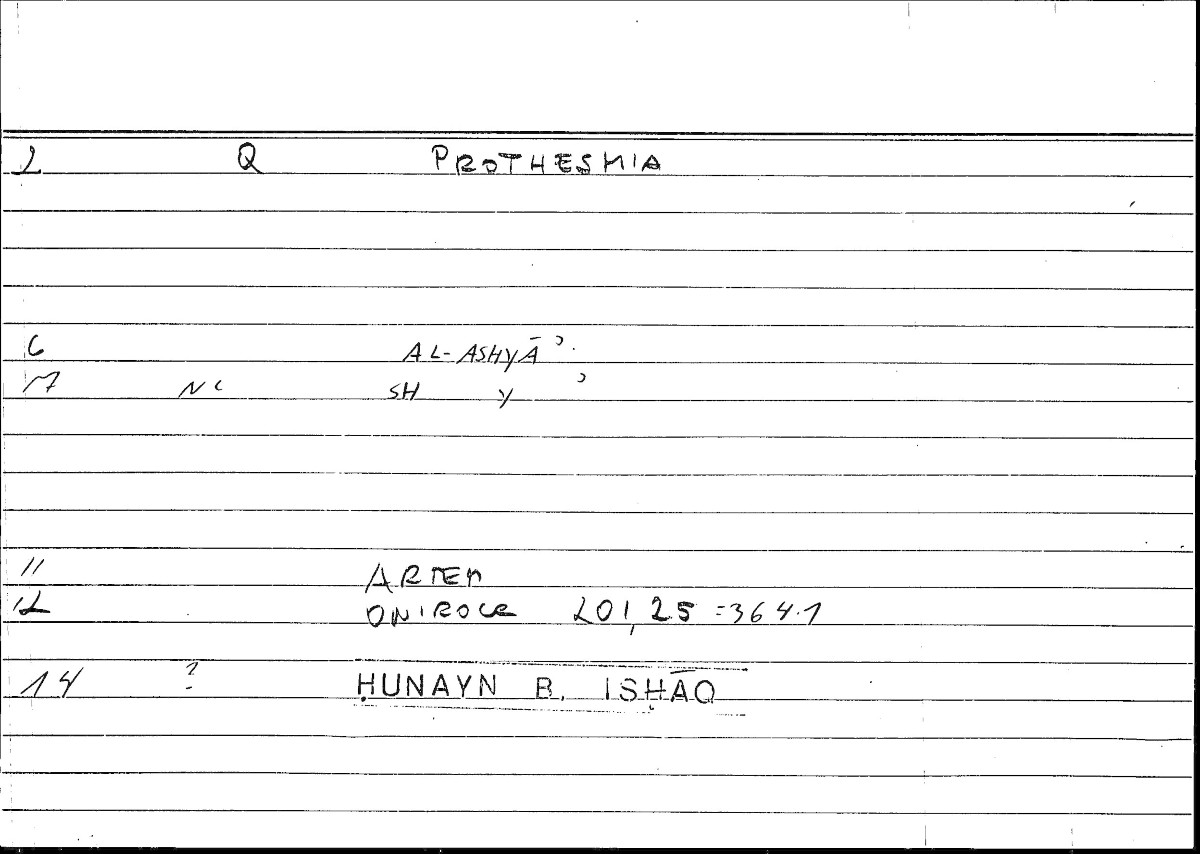 2 Q PROTHESMIA
6 AL-ASHYĀʾ.
17 NC SH Y ʾ
11 ARTEM
12 ONIROCR 201,25 =364.1
14 ? ḤUNAYN B. ISḤĀQ